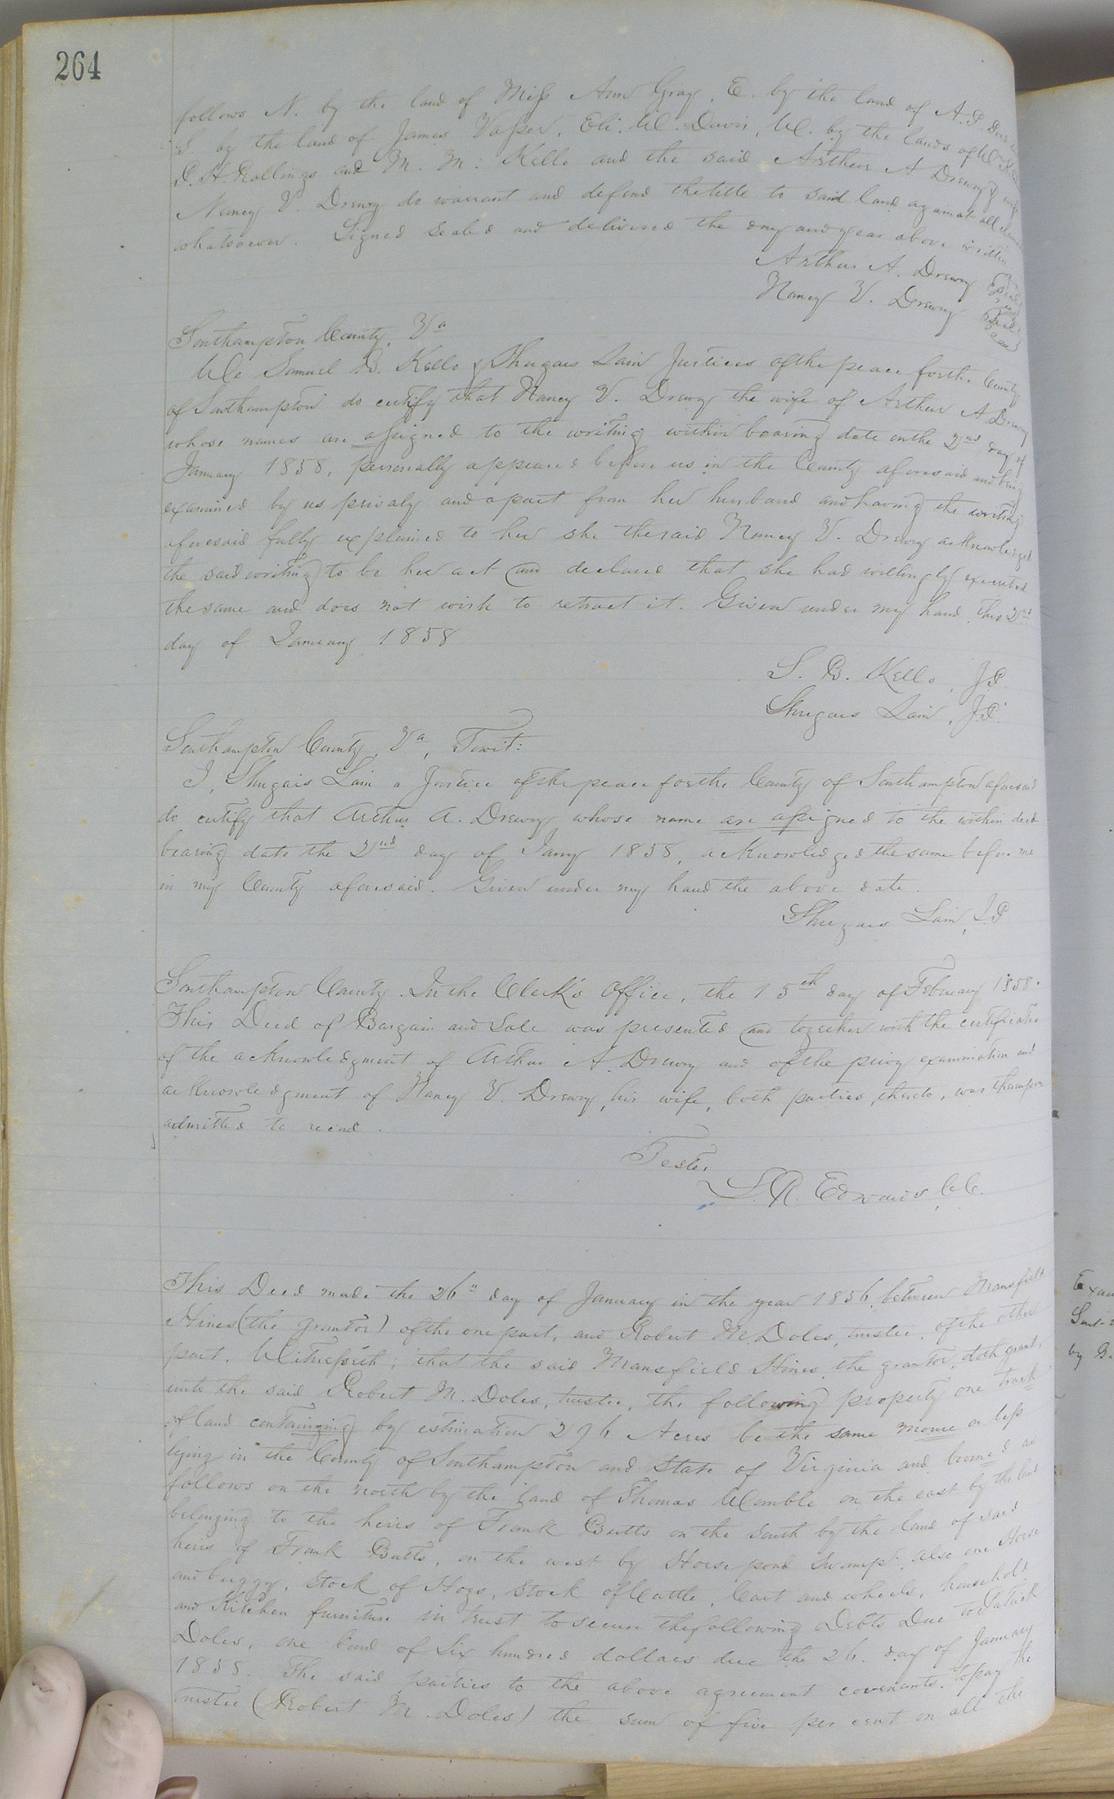 264
follows N. by the land of Miss Ann Gray, E. by the land of A. P.
S. by the land of James Vasser, Eli. W. Davis, W. by the lands of
D. H. Rollings and M. M. Kello and the said Arthur A Drewry &
Nancy V. Drewry do warrant and defend the title to said land against all
whatsoever. Signed Sealed and delivered the day and year above written
Arthur A. Drewry
Nancy V. Drewry
Southampton County, Va
We Samuel B. Kello & Shugars Lain Justices of the peace for the County
of Southampton do certify that Nancy V. Drewry the wife of Arthur A Drewry
whose names are assigned to the writing within bearing date on the 2nd day of
January 1858, personally appeared before us in the County aforesaid and being
examined by us privaly and apart from her husband and having the writing
aforesaid fully explained to her she the said Nancy V. Drewry acknowledged
the said writing to be her act and declared that she had willingly executed
the same and does not wish to retract it. Given under my hand this 2nd
day of January 1858
S. B. Kello, JP
Shugars Lain, JP.
Southampton County, Va, Towit:
I, Shugars Lain a Justice of the peace for the County of Southampton aforesaid
do certify that Arthur A. Drewry whose name are assigned to the within deed
bearing date the 2nd day of Jany 1858, acknowledged the same before me
in my County aforesaid. Given under my hand the above date.
Shugars Lain, J.P
Southampton County. In the Clerk's Office, the 15th day of February 1858.
This Deed of Bargain and Sale was presented and together with the certificates
of the acknowledgment of Arthur A. Drewry and of the privy examination and
acknowledgment of Nancy V. Drewry, his wife, both parties, thereto, was thereupon
admitted to record.
Teste,
L. R. Edwards, C.C.
This Deed made the 26th day of January in the year 1856, between Mansfield
Hines (the grantor) of the one part, and Robert M. Doles, trustee, of the other
part, Witnesseth; that the said Mansfield Hines, the grantor, doth grant,
unto the said Robert M. Doles, trustee, the following property one track
of land containging by estimation 296 Acres be the same morue or less
lying in the County of Southampton and State of Virginia and bound as
follows on the north by the land of Thomas Womble on the east by the land
belonging to the heirs of Frank Butts on the South by the land of said
heirs of Frank Butts, on the west by Horse pond Swamp, also one Horse
and buggy, Stock of Hogs, Stock of Cattle, Cart and wheels, household
and Kitchen furniture in trust to secure the following Debts Due to
Doles, one bond of Six hundred dollars due the 26. day of January
1855. The said parties to the above agreement covenants to pay the
trustee (Robert M. Doles) the sum of five per cent on all the
by B.